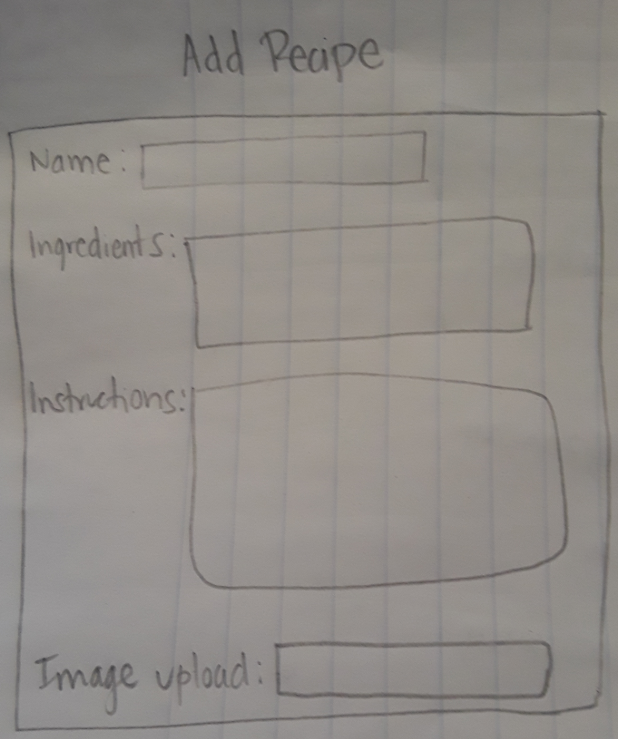 Add Recipe
Name:
Ingredients:
Instructions:
Image upload: